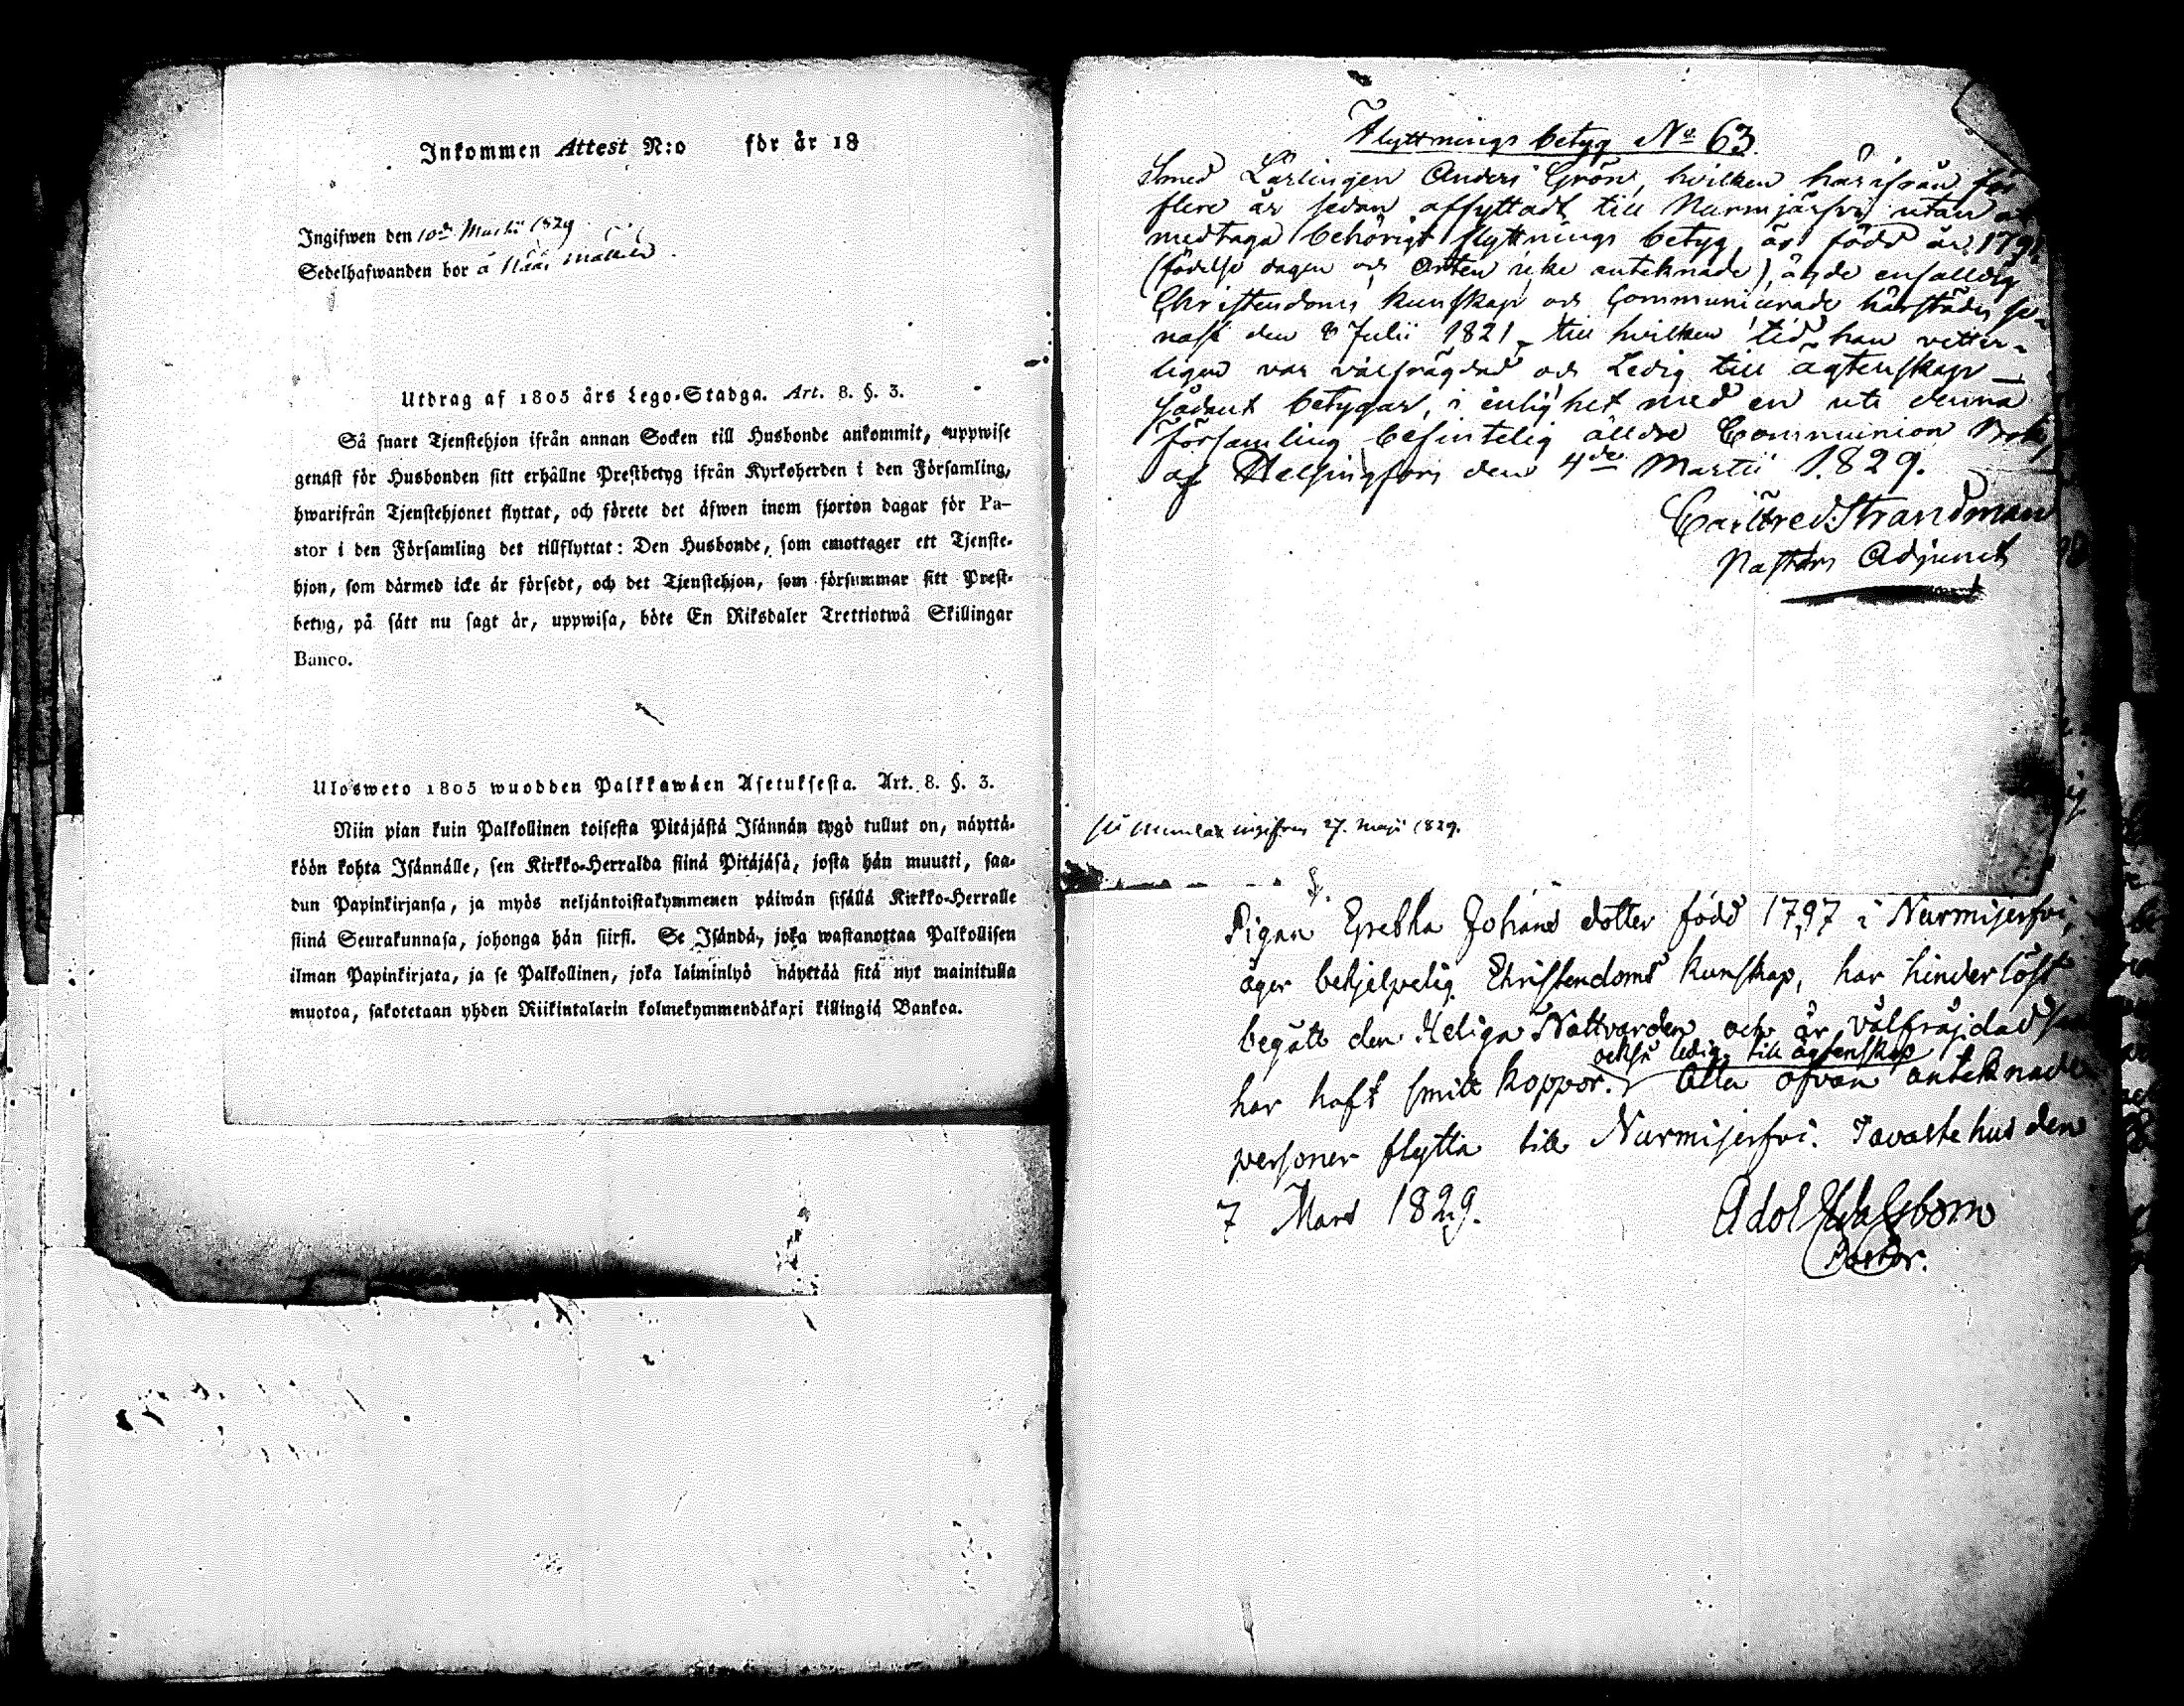 Inkommen Attest N:o för år 18
Ingifwen den 10de Martii 1829
Sedelhafwanden bor å Nääs
Utdrag af 1805 års Lego-Stadga. Art. 8. §. 3.
Så snart Tjenstehjon ifrån annan Socken till Husbonde ankommit, uppwise
genast för Husbonden sitt erhållne Prestbetyg ifrån Kyrkoherden i den Församling,
hwarifrån Tjenstehjonet flyttat, och förete det äfwen inom fjorton dagar för Pa-
stor i den Församling det tillflyttat: Den Husbonde, som emottager ett Tjenste-
hjon, som därmed icke är försedt, och det Tjenstehjon, som försummar sitt Prest-
betyg, på sätt nu sagt är, uppwisa, böte En Riksdaler Trettiotwå Skillingar
Banco.
Ulosweto 1805 wuodden Palkkawäen Asetuksesta. Art. 8. §. 3.
Niin pian kuin Palkollinen toisesta Pitäjästä Isännän tygö tullut on, näyttä-
köön kohta Isännälle, sen Kirkko-Herralda siinä Pitäjäsä, josta hän muutti, saa-
dun Papinkirjansa, ja myös neljäntoistakymmenen päiwän sisällä Kirkko-Herralle
siinä Seurakunnasa, johonga hän siirsi. Se Isändä, joka wastanottaa Palkollisen
ilman Papinkirjata, ja se Palkollinen, joka laiminlyö näyttää sitä nyt mainitulla
muotoa, sakotetaan yhden Riikintalarin kolmekymmendäkaxi killingiä Bankoa.
Flyttnings betyg No 63.
Smed Lärlingen Anders Grön, hvilken härifrån för
flere år sedan afflyttadt till Nurmjärfvi utan at
medtaga behörigt flyttnings betyg, är född år 179
(födelse dagen och Orten icke antecknade), ägde enfalldig
Christendoms kunskap och Communicerade härstädes se-
nast den 8 Julii 1821, till hvilken tid han vetter-
ligen var välfrägdad och Ledig till ägtenskap
sådant betygar, i enlighet med en uti denna
församling befintelig älldre Communion Bok,
af Helsingfors den 4de Martii 1829.
Carl Fred. Strandman
Pastors Adjunct
ingifven 27. Maji 1829.
Pigan Gretha Johans dotter född 1797 i Nurmijerfvi,
äger behjelpelig Christendoms kunskap, har hinderlöst
begått den Heliga Nattvarden och är välfräjdad
också ledig till ägtenskap
har haft smitt koppor. Alla ofvan antecknade
personer flytta till Nurmijerfvi. Tavastehus den
7 Mars 1829.
Adol
Pastor.